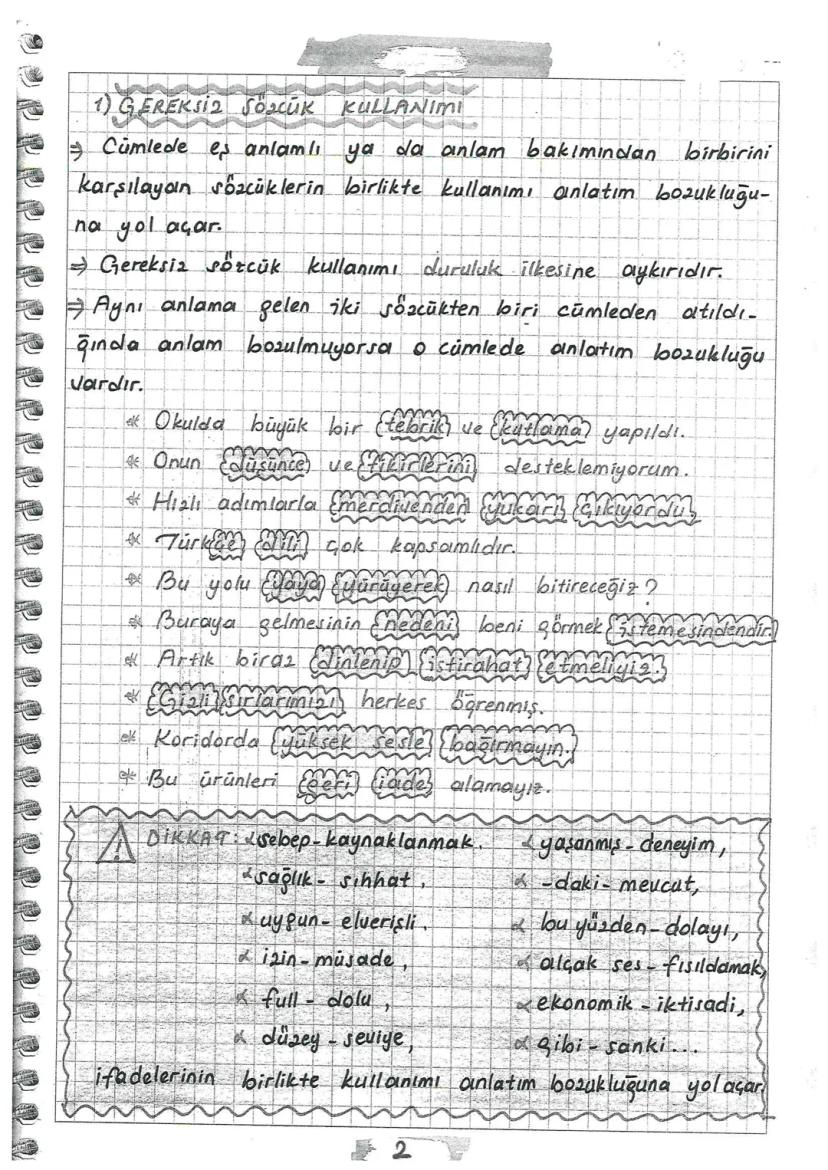 1) GEREKSİZ SÖZCÜK KULLANIMI
⇒ Cümlede eş anlamlı ya da anlam bakımından birbirini
karşılayan sözcüklerin birlikte kullanımı anlatım bozukluğu-
na yol açar.
⇒ Gereksiz sözcük kullanımı duruluk ilkesine aykırıdır.
⇒ Aynı anlama gelen iki sözcükten biri cümleden atıldı-
ğında anlam bozulmuyorsa o cümlede anlatım bozukluğu
vardır.
* Okulda büyük bir tebrik ve kutlama yapıldı.
* Onun düşünce ve fikirlerini desteklemiyorum.
* Hızlı adımlarla merdivenden yukarı çıkıyordu,
* Türkçe dili çok kapsamlıdır.
* Bu yolu yaya yürüyerek nasıl bitireceğiz?
* Buraya gelmesinin nedeni beni görmek istemesindendir.
* Artık biraz dinlenip istirahat etmeliyiz.
* Gizli sırlarımızı herkes öğrenmiş.
* Koridorda yüksek sesle bağırmayın.
* Bu ürünleri geri iade alamayız.
DİKKAT: sebep-kaynaklanmak. yaşanmış-deneyim,
sağlık-sıhhat, -daki-mevcut,
uygun-elverişli. bu yüzden-dolayı,
izin-müsade, alçak ses-fısıldamak,
full-dolu, ekonomik-iktisadi,
düzey-seviye, gibi-sanki...
ifadelerinin birlikte kullanımı anlatım bozukluğuna yol açar
2